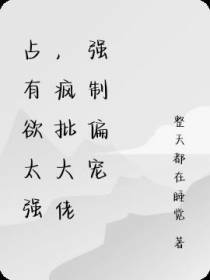 占有欲太强
，疯批大佬
强制偏宠
整天都在睡觉 著